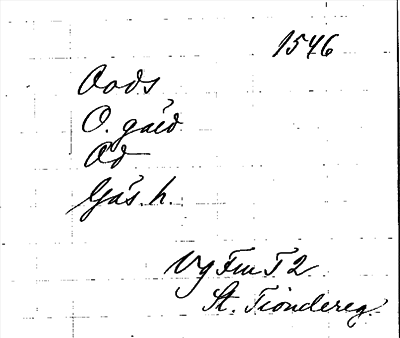 1546
Oods
O. gård
Od
Gäs. h.
Vg Fm T 2
St. Tiondereg.